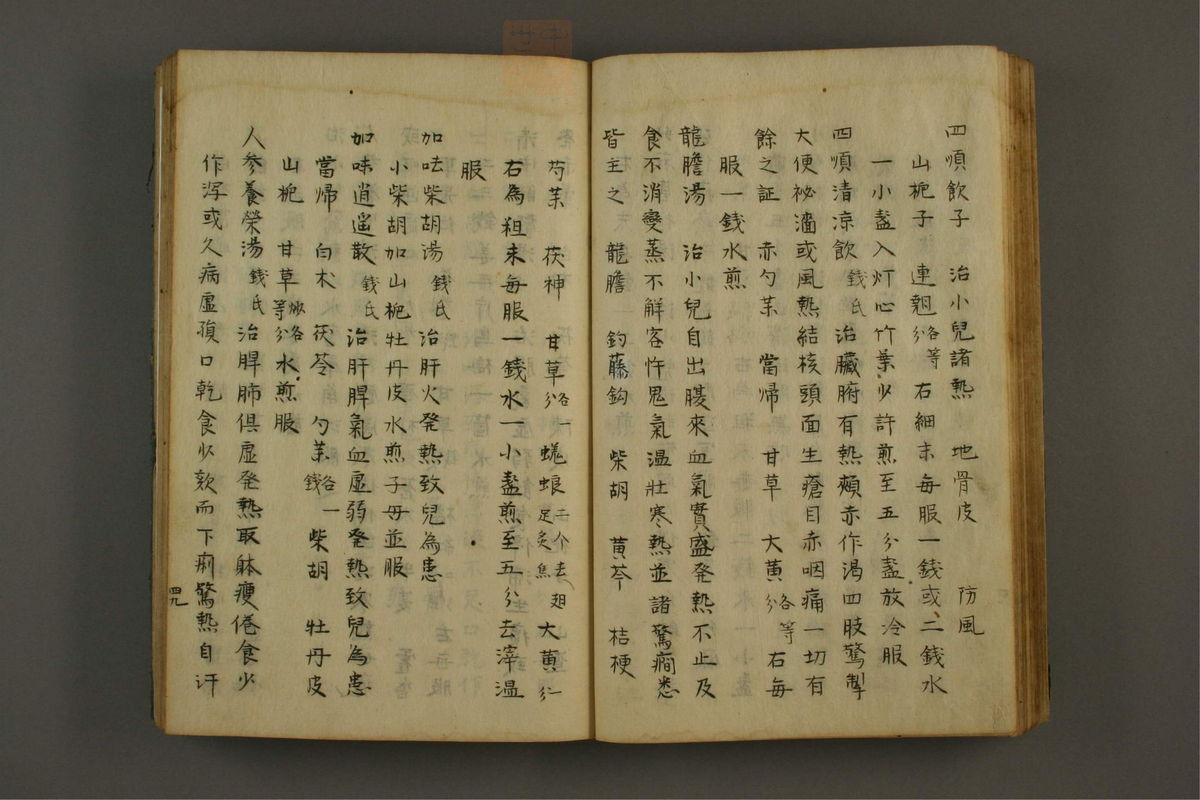 四順飲子 治小兒諸熱 地骨皮 防風
山梔子 連翹各等分 右細末每服一錢或二錢水
一小盞入灯心竹葉少許煎至五分盞放冷服
四順清凉飲 錢氏 治臟腑有熱頰赤作渴四肢驚掣
大便祕濇或風熱結核頭面生瘡目赤咽痛一切有
餘之証 赤勺薬 當帰 甘草 大黄各等分 右每
服一錢水煎
龍膽湯 治小兒自出腹來血氣實盛発熱不止及
食不消變蒸不解客忤鬼氣温壮寒熱並諸驚癇悉
皆主之 龍膽 釣藤鈎 柴胡 黄芩 桔梗
芍薬 茯神 甘草各一分 蜣蜋二个去翅足炙焦 大黄一分
右為粗末每服一錢水一小盞煎至五分去滓温
服
加味柴胡湯 錢氏 治肝火発熱致兒為患
小柴胡加山梔牡丹皮水煎子母並服
加味逍遥散 錢氏 治肝脾氣血虛弱発熱致兒為患
當帰 白朮 茯苓 勺薬各一錢 柴胡 牡丹皮
山梔 甘草炒各等分水煎服
人参養榮湯 錢氏 治脾肺倶虛発熱取躰瘦倦食少
作瀉或久病虛損口乾食少欬而下痢驚熱自汗
四九